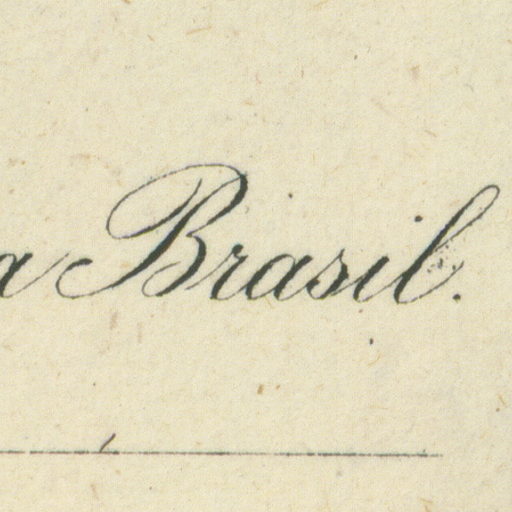 a Brasil.